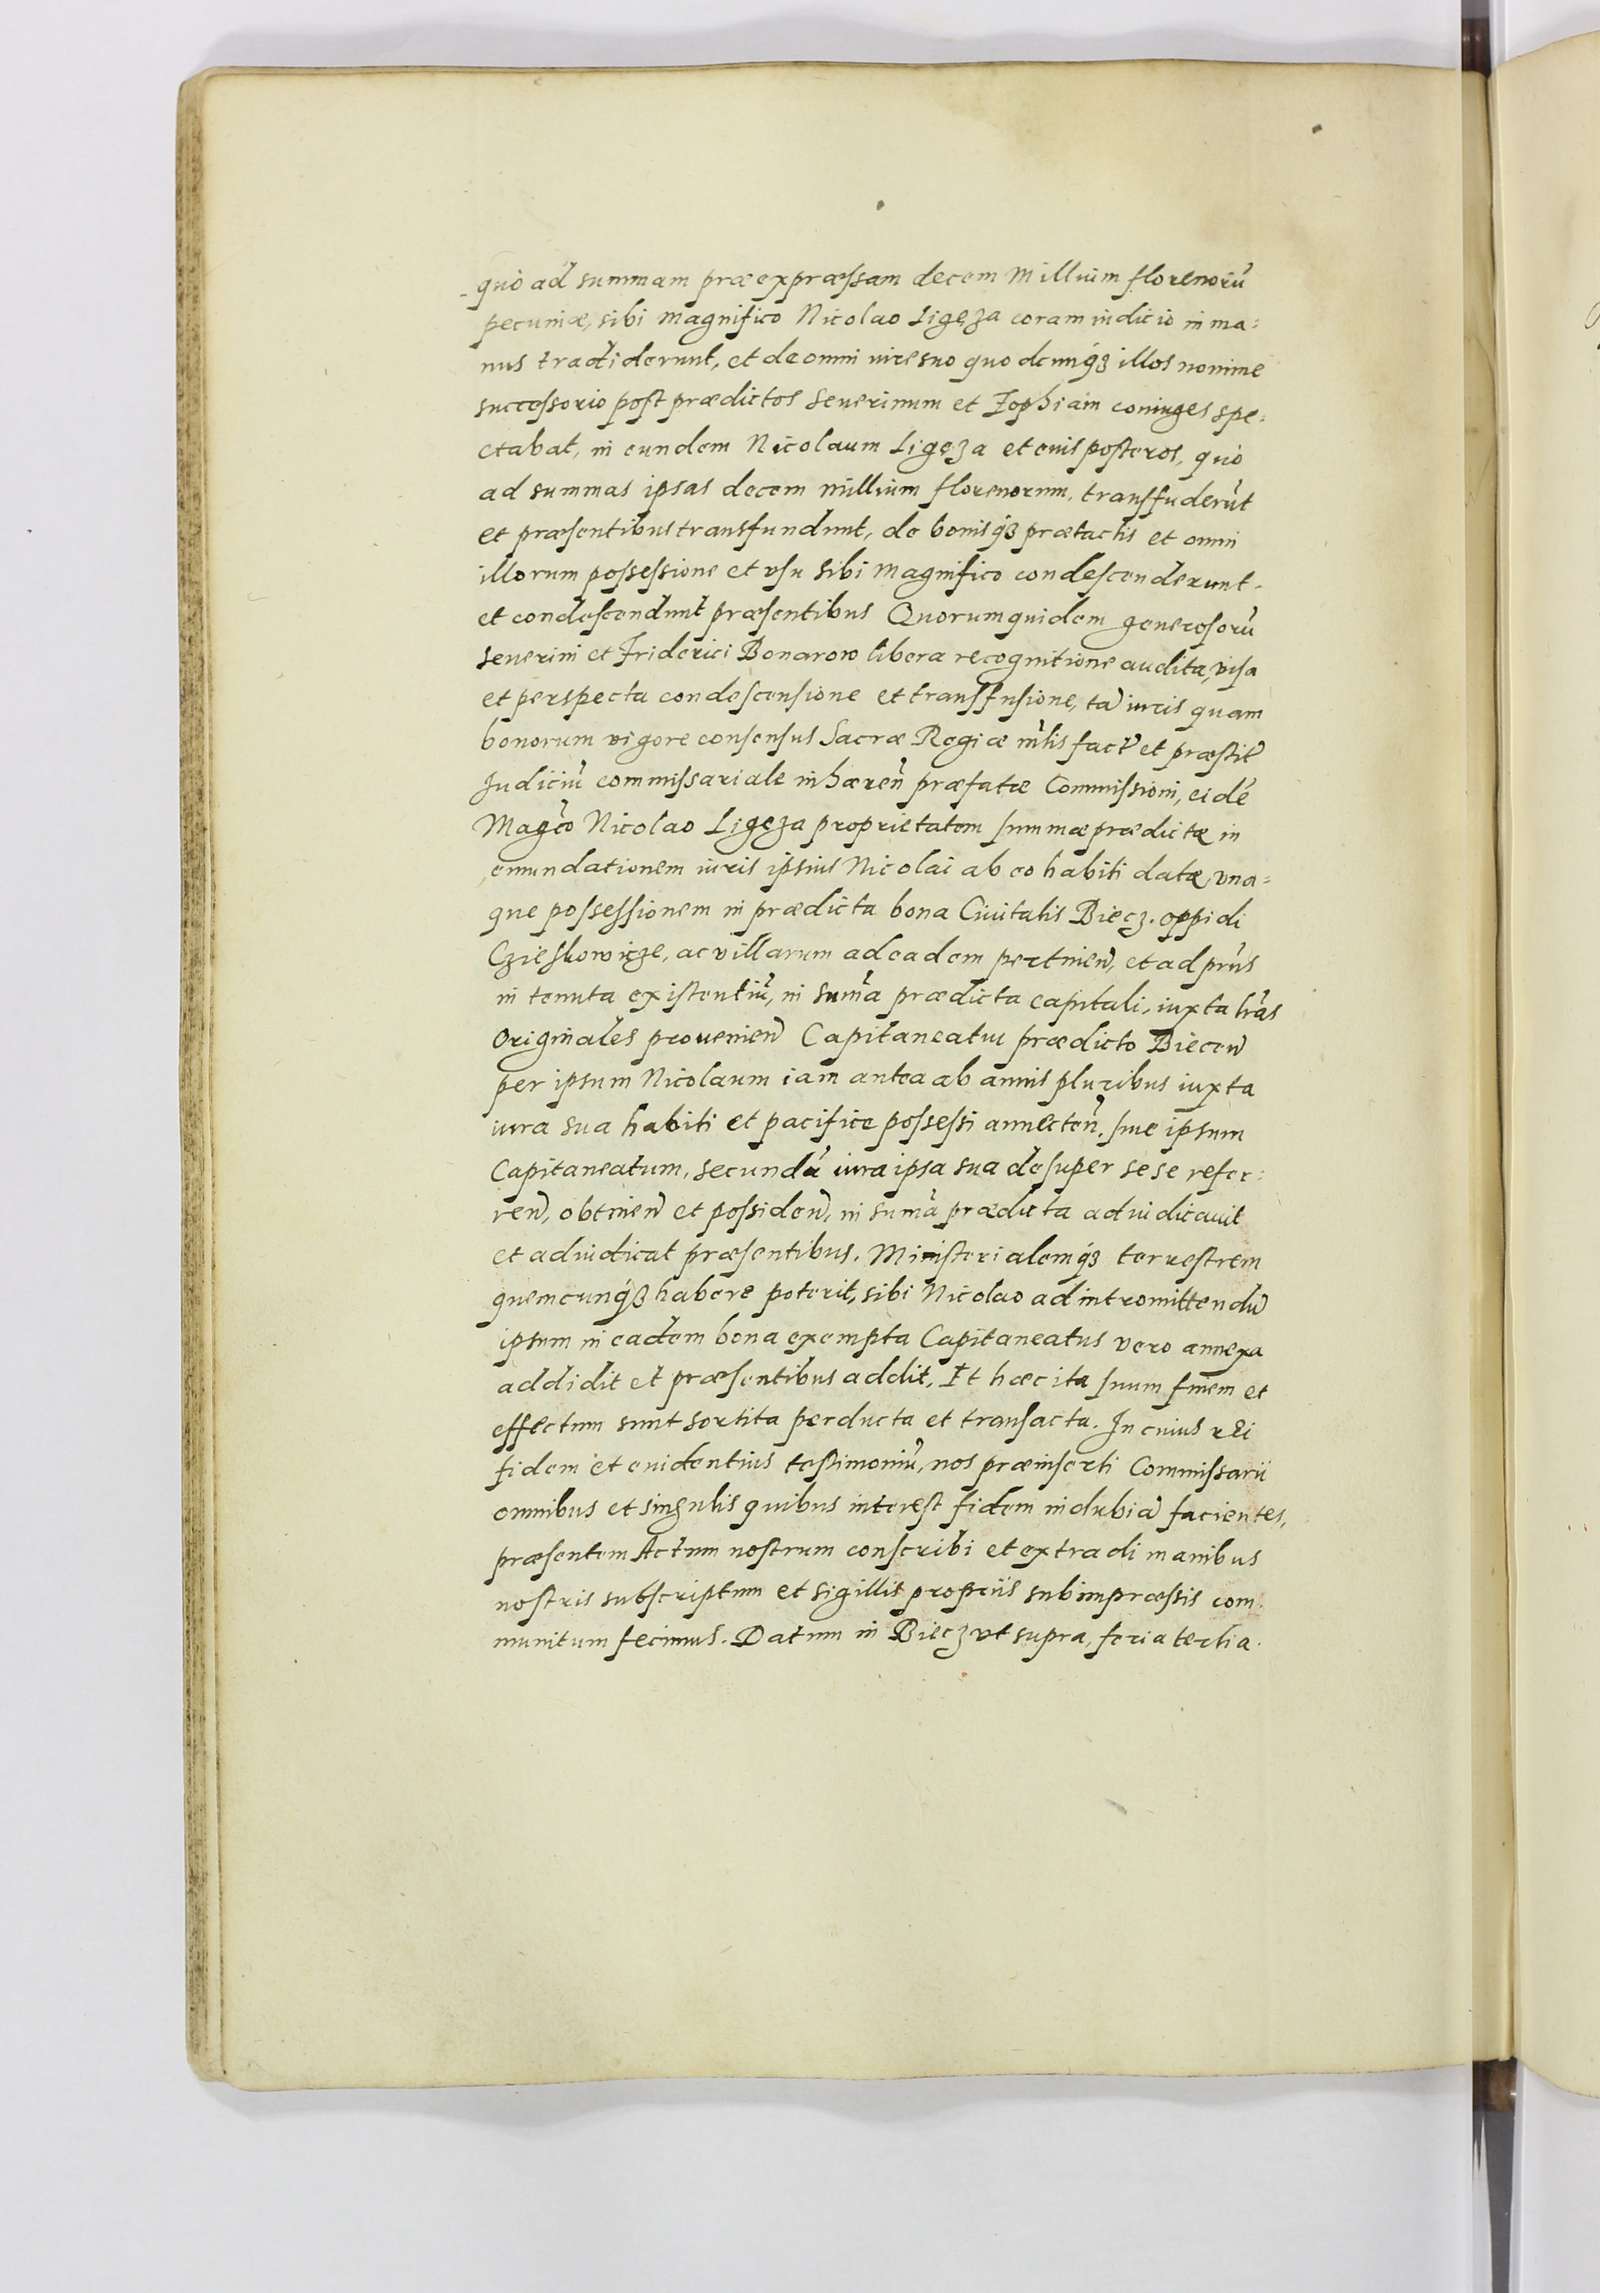 quò ad summam præexpræssam decem Millium florenorũ
pecuniæ, sibi magnifico Nicolao Ligęza coram iudicio in ma=
nus tradiderunt, et de omni iure suo quodcunq́ȝ illos nomine
successorio post prædictos Seuerinum et Zophiam coniuges spe=
ctabat, in eundem Nicolaum Ligęza et eius posteros, quò
ad summas ipsas decem millium florenorum, transfuderũt
et præsentibus transfundunt, de bonisq́ȝ prætactis et omni
illorum possessione et vsu sibi Magnifico condescenderunt.
et condescendunt præsentibus Quorumquidem generosorũ
Seuerini et Friderici Bonarow libera recognitione audita, visa
et perspecta condescensione et transfusione, tã iuris quam
bonorum vigore consensus Sacræ Regiæ mtis fact̃ et præstit̃
Judiciũ commissariale inhæreñ præfatæ Commissioni, eidẽ
Magco Nicolao Ligęza proprietatem summæ prædictæ in
emundationem iuris ipsius Nicolai ab eo habiti datæ, vna=
que possessionem in prædicta bona Ciuitatis Biecz. oppidi
Czieszkowicze, ac villarum ad eadem pertineñ, et ad prñs
in tenuta existentiũ, in sum̃a prædicta capitali, iuxta lr̃as
Originales prouenieñ Capitaneatui prædicto Bieceñ
per ipsum Nicolaum iam antea ab annis pluribus iuxta
iura sua habiti et pacifice possessi annecteñ. siue ipsum
Capitaneatum, secundũ iura ipsa sua desuper sese refer=
reñ, obtineñ et possideñ, in sum̃a prædicta adiudicauit
et adiudicat præsentibus. Ministerialemq́ȝ terrestrem
quemcunq́ȝ habere poterit, sibi Nicolao ad intromittendũ
ipsum in eadem bona exempta Capitaneatus vero annexa
addidit et præsentibus addit, Et hæc ita suum finem et
effectum sunt sortita perducta et transacta. In cuius rei
fidem et euidentius testimoniũ, nos præinserti Commissarii
omnibus et singulis quibus interest fidem indubiã facientes,
præsentem Actum nostrum conscribi et extradi manibus
nostris subscriptum et sigillis propriis subimpræssis com=
munitum fecimus. Datum in Biecz vt supra, feria tertia.